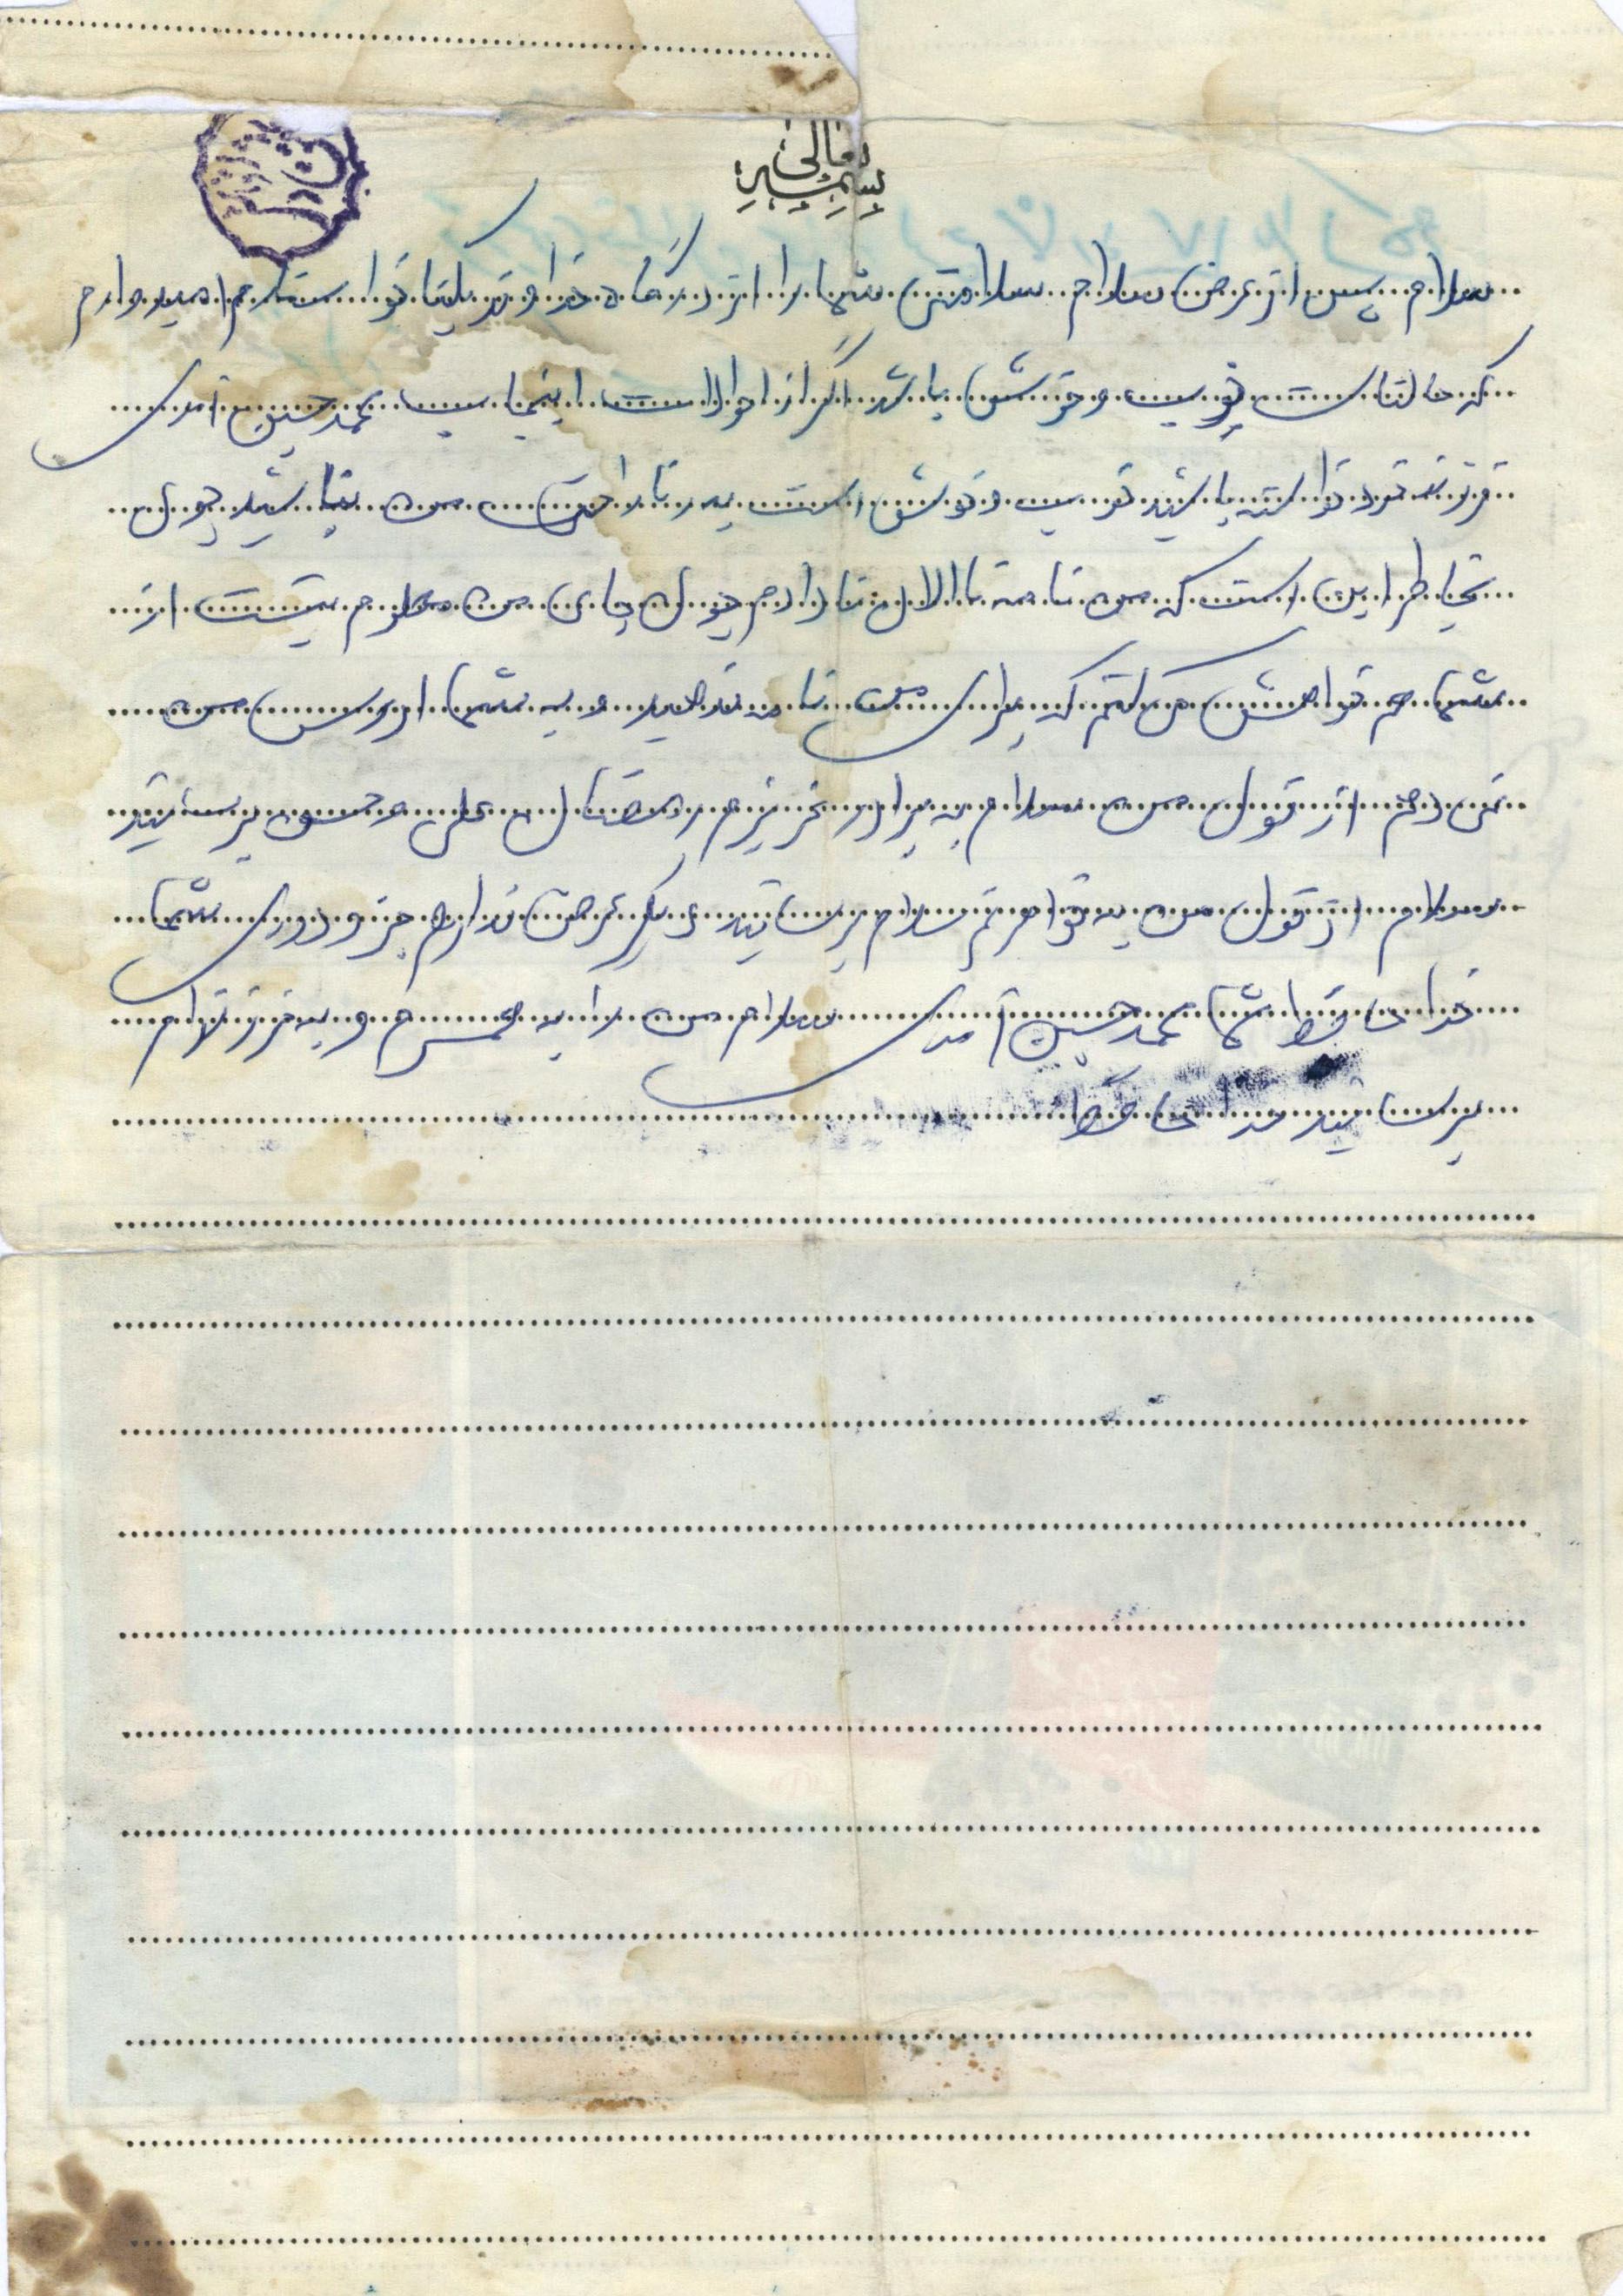 بسمه تعالی
سلام پس از عرض سلام سلامتی شما را از درگاه خداوند یکتا خواستارم امیدوارم
که حالتان خوب و خوش باشد اگر از احوالات اینجانب محمد حسین آمدی
فرزند خود خواسته باشید خوب و خوش است به ناراحتی من نباشید چون
بخاطر این است که من نامه تا الان ندادم چون جای من معلوم نیست از
شما هم خواهش می کنم که برای من نامه ندهید و به شما ادرس من
نمی دهم از قول من سلام به برادر عزیزم رمضان علی و حسن برسانید
سلام از قول من به خواهرم سلام برسانید دیگر عرضی ندارم جزو دوری شما
خدا حافظ شما محمد حسین آمدی سلام من را به همسرم و به فرزندهام
برسانید خدا حافظ